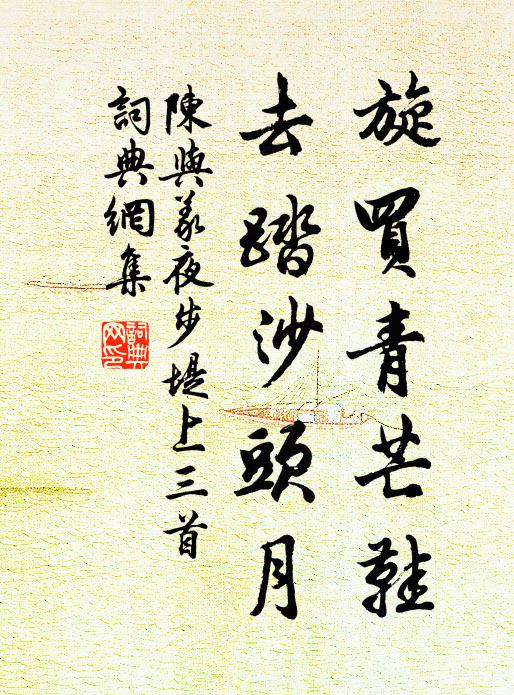 旋買青芒鞋
去踏沙頭月
陳與義夜步堤上三首
詞典網集
詞典网印